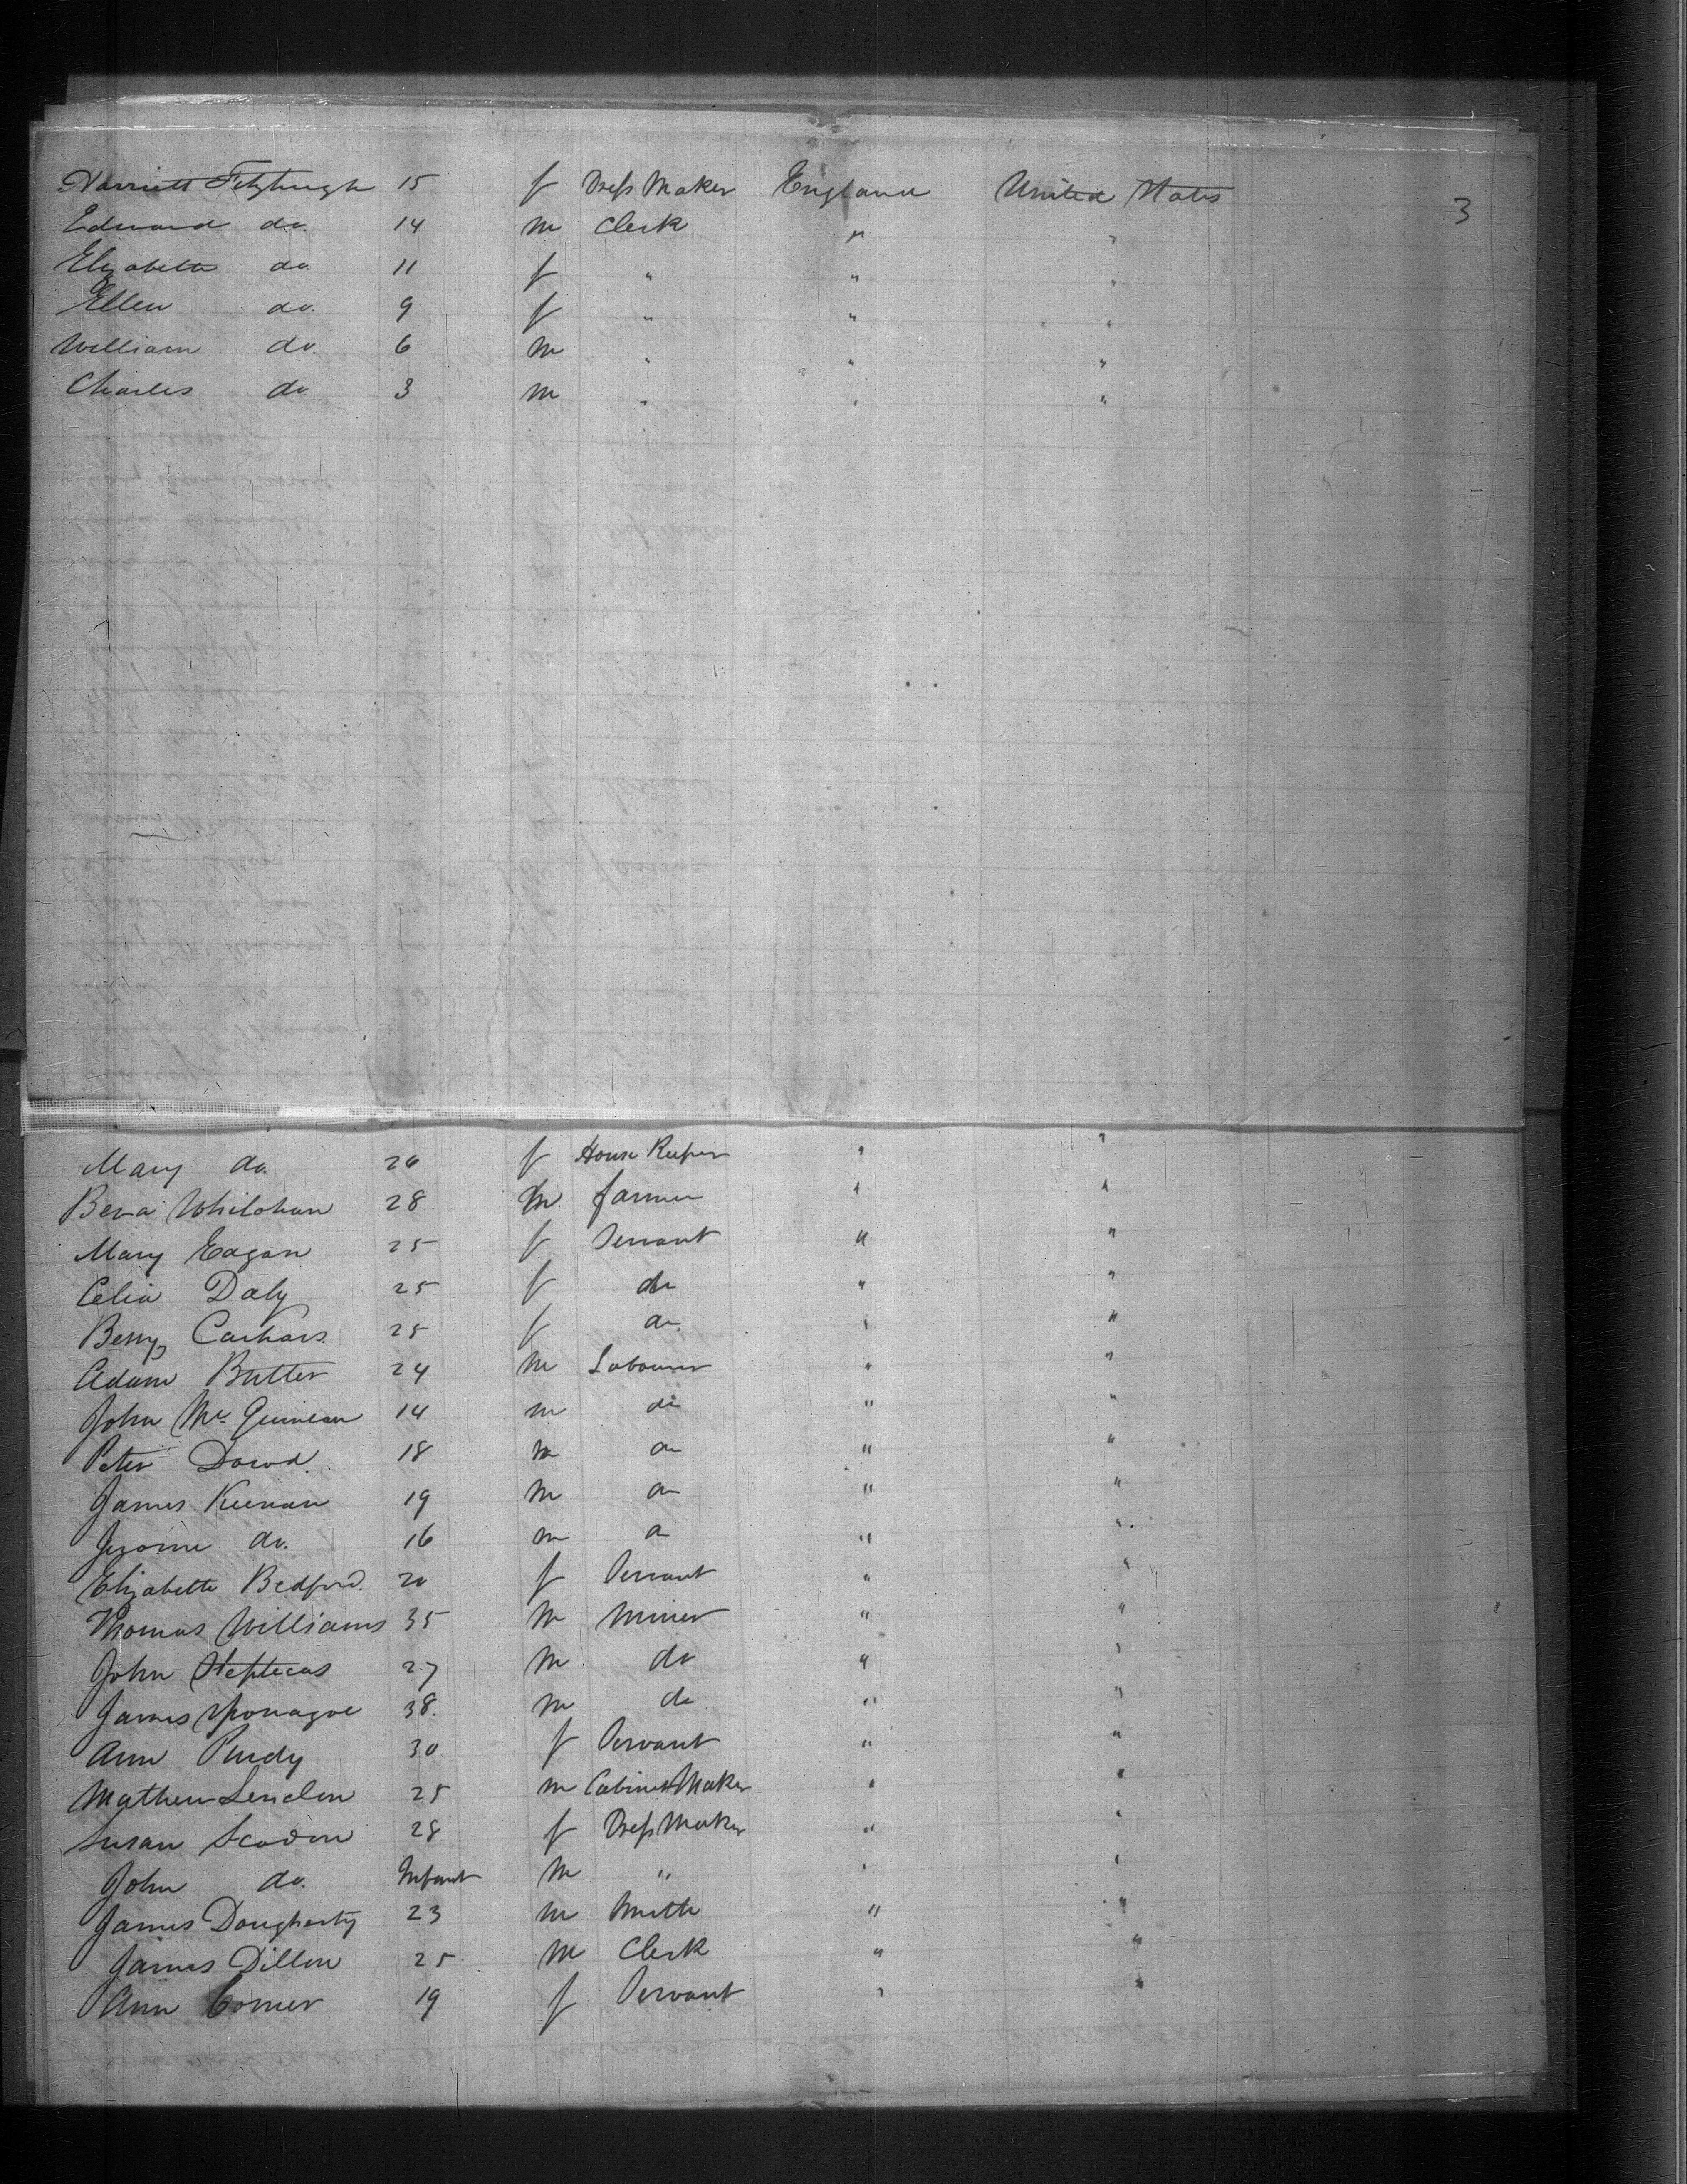 Harriett Fitzhugh 15 f Dress Maker England United States
3
Edward do. 14 m Clerk " "
Elizabeth do. 11 f " " "
Ellen do. 9 f " " "
William do. 6 m " " "
Charles do 3 m " " "
Mary do. 26 f House Keeper " "
28 m farmer " "
Mary Eagan 25 f Servant " "
Celia Daly 25 f do " "
Bessy 25 f do. " "
Adam Butler 24 m Labourer " "
John Mc 14 m do " "
Peter Dowd 18 m do " "
James Keenan 19 m do " "
Jerome do. 16 m do " "
Elizabeth Bedford. 20 f Servant " "
Thomas Williams 35 m Miner " "
John 27 m do " "
James 38. m do " "
Ann Purdy 30 f Servant " "
Mathew 25 m Cabinet Maker " "
Susan 28 f Dress Maker " "
John do. Infant m " " "
James Dougherty 23 m Smith " "
James Dillon 25 m Clerk " "
Ann Comer 19 f Servant " "